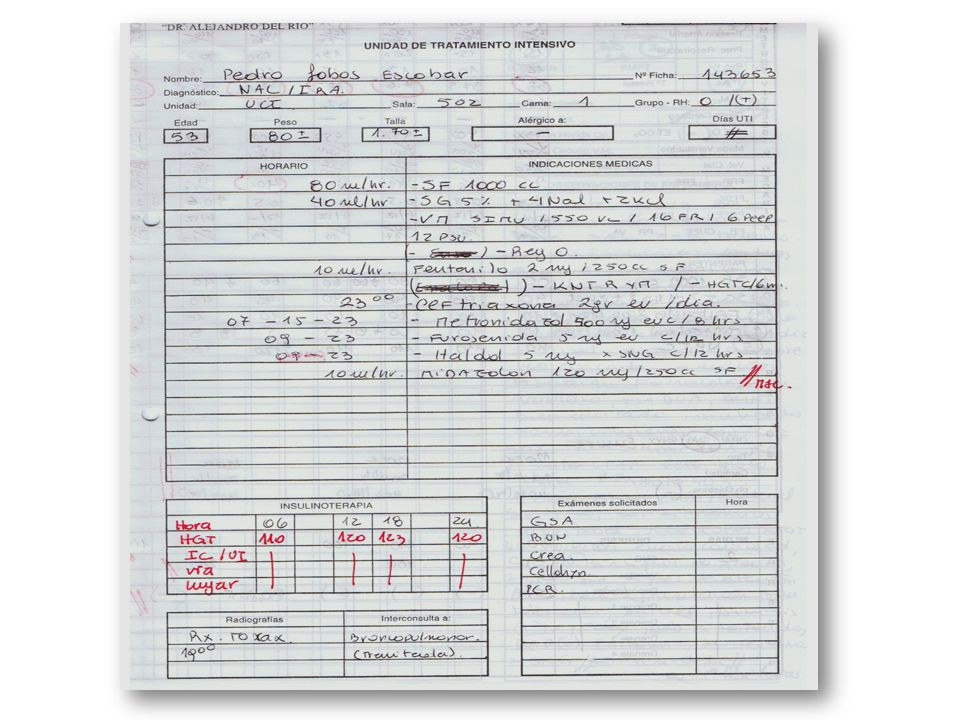 "DR. ALEJANDRO DEL RIO"
UNIDAD DE TRATAMIENTO INTENSIVO
Nombre: Pedro Lobos Escobar Nº Ficha: 143653
Diagnóstico: NAC / IRA.
Unidad: UCI Sala: 502 Cama: 1 Grupo - RH: O /(+)
Edad Peso Talla Alérgico a: Días UTI
53 80 ± 1.70 ± —
HORARIO INDICACIONES MEDICAS
80 ml/hr. - SF 1000 cc
40 ml/hr - SG 5% + 4 Nacl + 2 Kcl
- VM SIMV / 550 VC / 16 FR / 6 Peep
12 PSV.
- Reg 0.
10 ml/hr. Fentanilo 2 mg / 250cc SF
) - KNT R y M / - HGT c/6
23 00 - CEFtriaxona 2gr ev /dia.
07 - 15 - 23 - Metronidazol 500 mg ev c/8 hrs
09 - 23 - Furosemida 5 mg ev c/12 hrs
09 - 23 - Haldol 5 mg x SNG c/12 hrs
10 ml/hr. MiDAZolon 120 mg/250cc SF
INSULINOTERAPIA
Hora 06 12 18 24
HGT 110 120 123 120
IC / UI
via
lugar
Exámenes solicitados Hora
GSA
BUN
Crea.
PCR.
Radiografías Interconsulta a:
Rx. Toxax. Broncopulmonar.
19 00